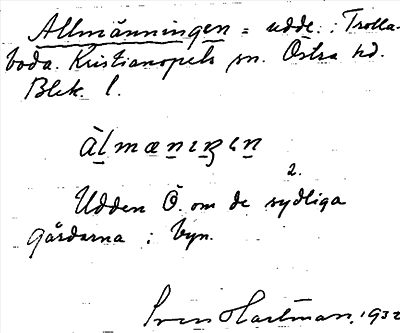 Allmänningen = udde i Trolla-
boda. Kristianopels sn. Östra hd.
Blek. l.
àlmænıŋɩn
2.
Udden Ö. om de sydliga
gårdarna i byn.
Sven Hartman, 1932